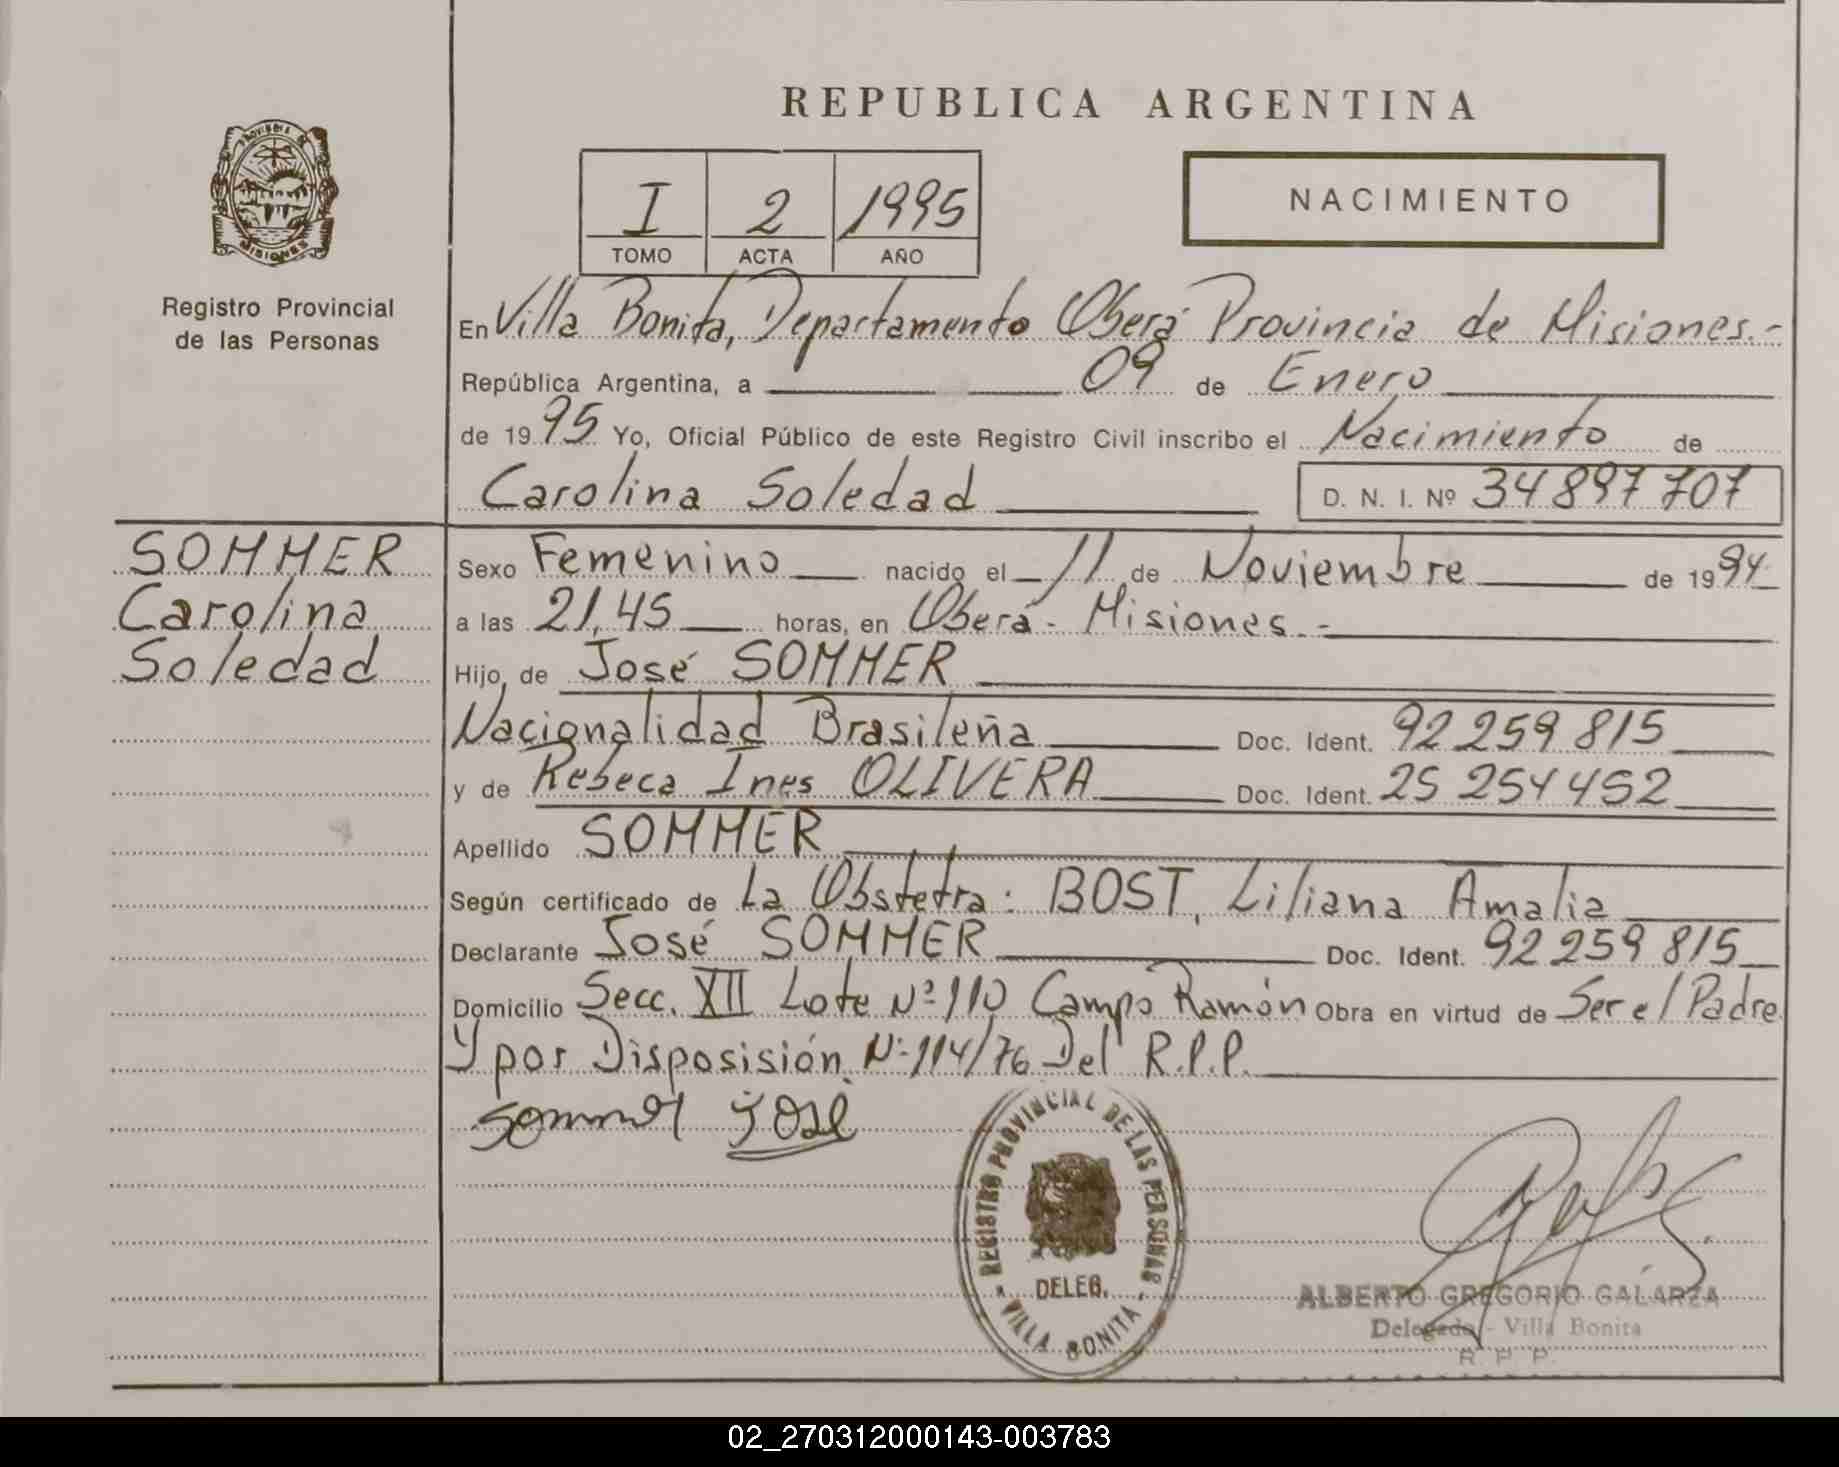 REPUBLICA ARGENTINA
PROVINCIA DE
MISIONES
Registro Provincial
de las Personas
I 2 1995
TOMO ACTA AÑO
NACIMIENTO
En Villa Bonita, Departamento Oberá Provincia de Misiones.-
República Argentina, a 09 de Enero
de 1995 Yo, Oficial Público de este Registro Civil inscribo el Nacimiento de
Carolina Soledad D. N. I. Nº 34 897 707
SOMMER
Carolina
Soledad
Sexo Femenino nacido el 11 de Noviembre de 1994
a las 21,45 horas, en Oberá - Misiones.-
Hijo de José SOMMER
Nacionalidad Brasileña Doc. Ident. 92 259 815
y de Rebeca Ines OLIVERA Doc. Ident. 25 254 452
Apellido SOMMER
Según certificado de La Obstetra: BOST, Liliana Amalia
Declarante José SOMMER Doc. Ident. 92 259 815
Domicilio Secc. XII Lote Nº 110 Campo Ramón Obra en virtud de Ser el Padre
Y por Disposisión Nº 114/76 Del R.P.P.
Sommer José
REGISTRO PROVINCIAL DE LAS PERSONAS
DELEG.
VILLA BONITA
ALBERTO GREGORIO GALARZA
Delegado - Villa Bonita
R. P. P.
02_270312000143-003783